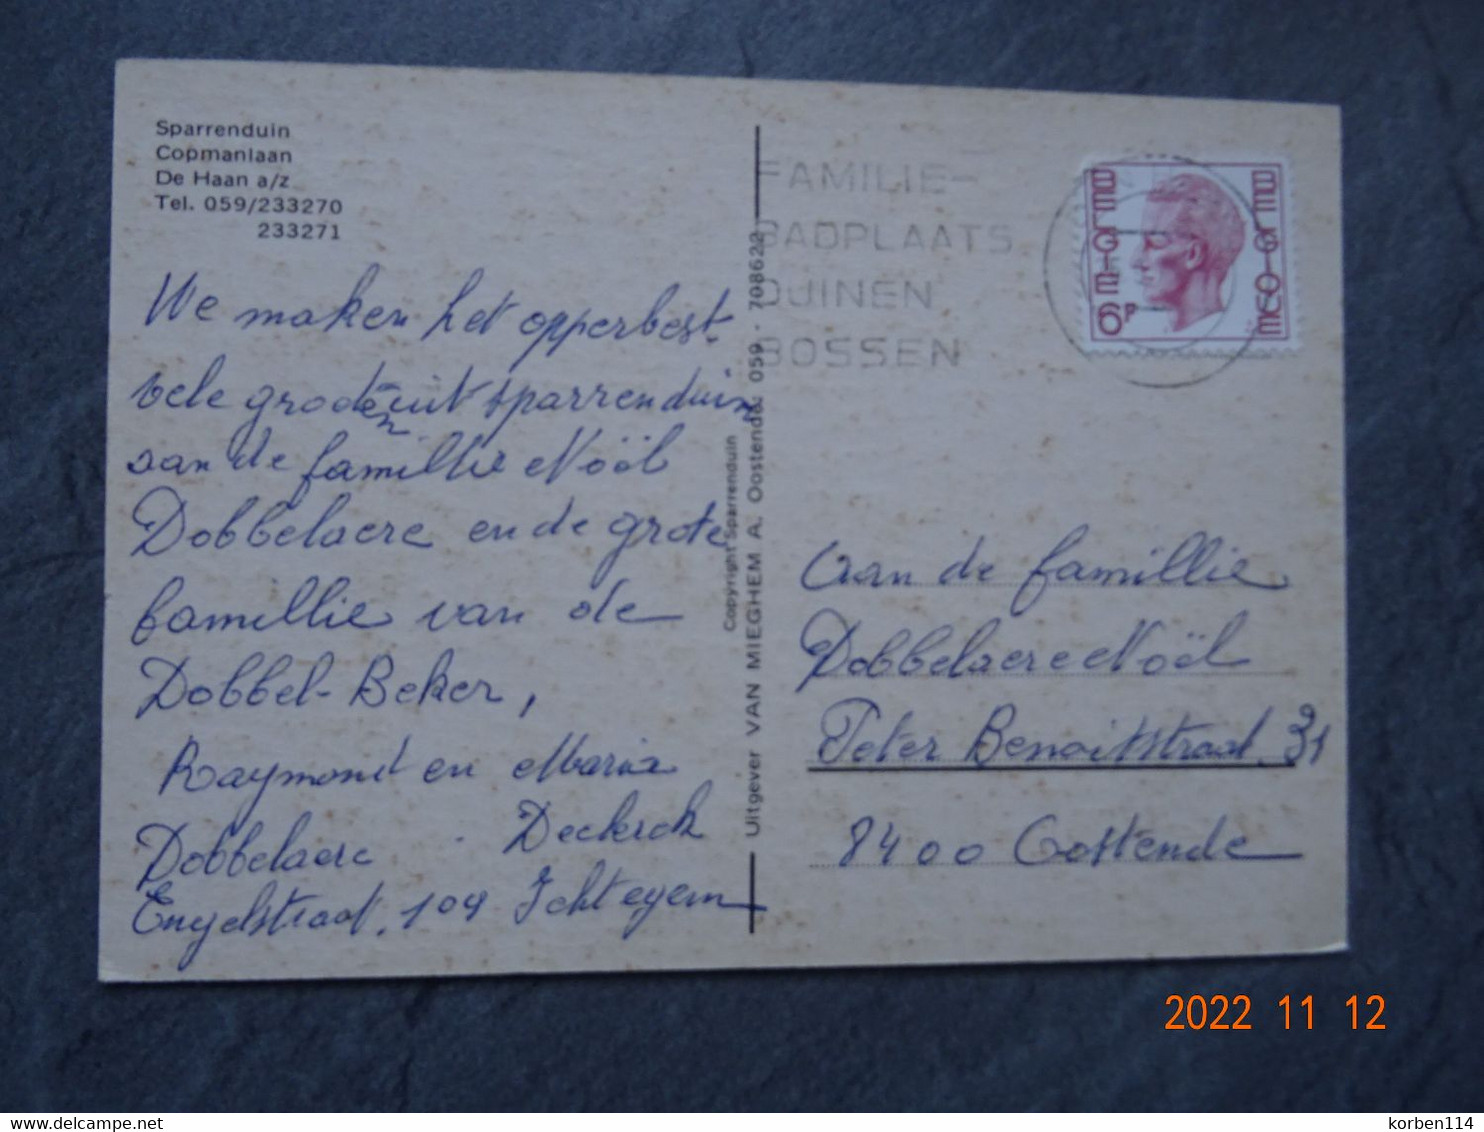 Sparrenduin
Copmanlaan
De Haan a/z
Tel. 059/233270
233271
We maken het opperbest.
vele groeten uit sparrenduin
van de famillie Noöl
Dobbelaere en de grote
famillie van de
Dobbel-Beker,
Raymond en Maria
Dobbelaere - Declerck
Engelstraat. 109 Ichtegem
Copyright Sparrenduin
Uitgever VAN MIEGHEM A. Oostende. 059 - 708622
FAMILIE-
BADPLAATS
DUINEN
BOSSEN
BELGIE
BELGIQUE
6F
Aan de famillie
Dobbelaere Noël
Peter Benoitstraat. 31
8400 Oostende
2022 11 12
korben114